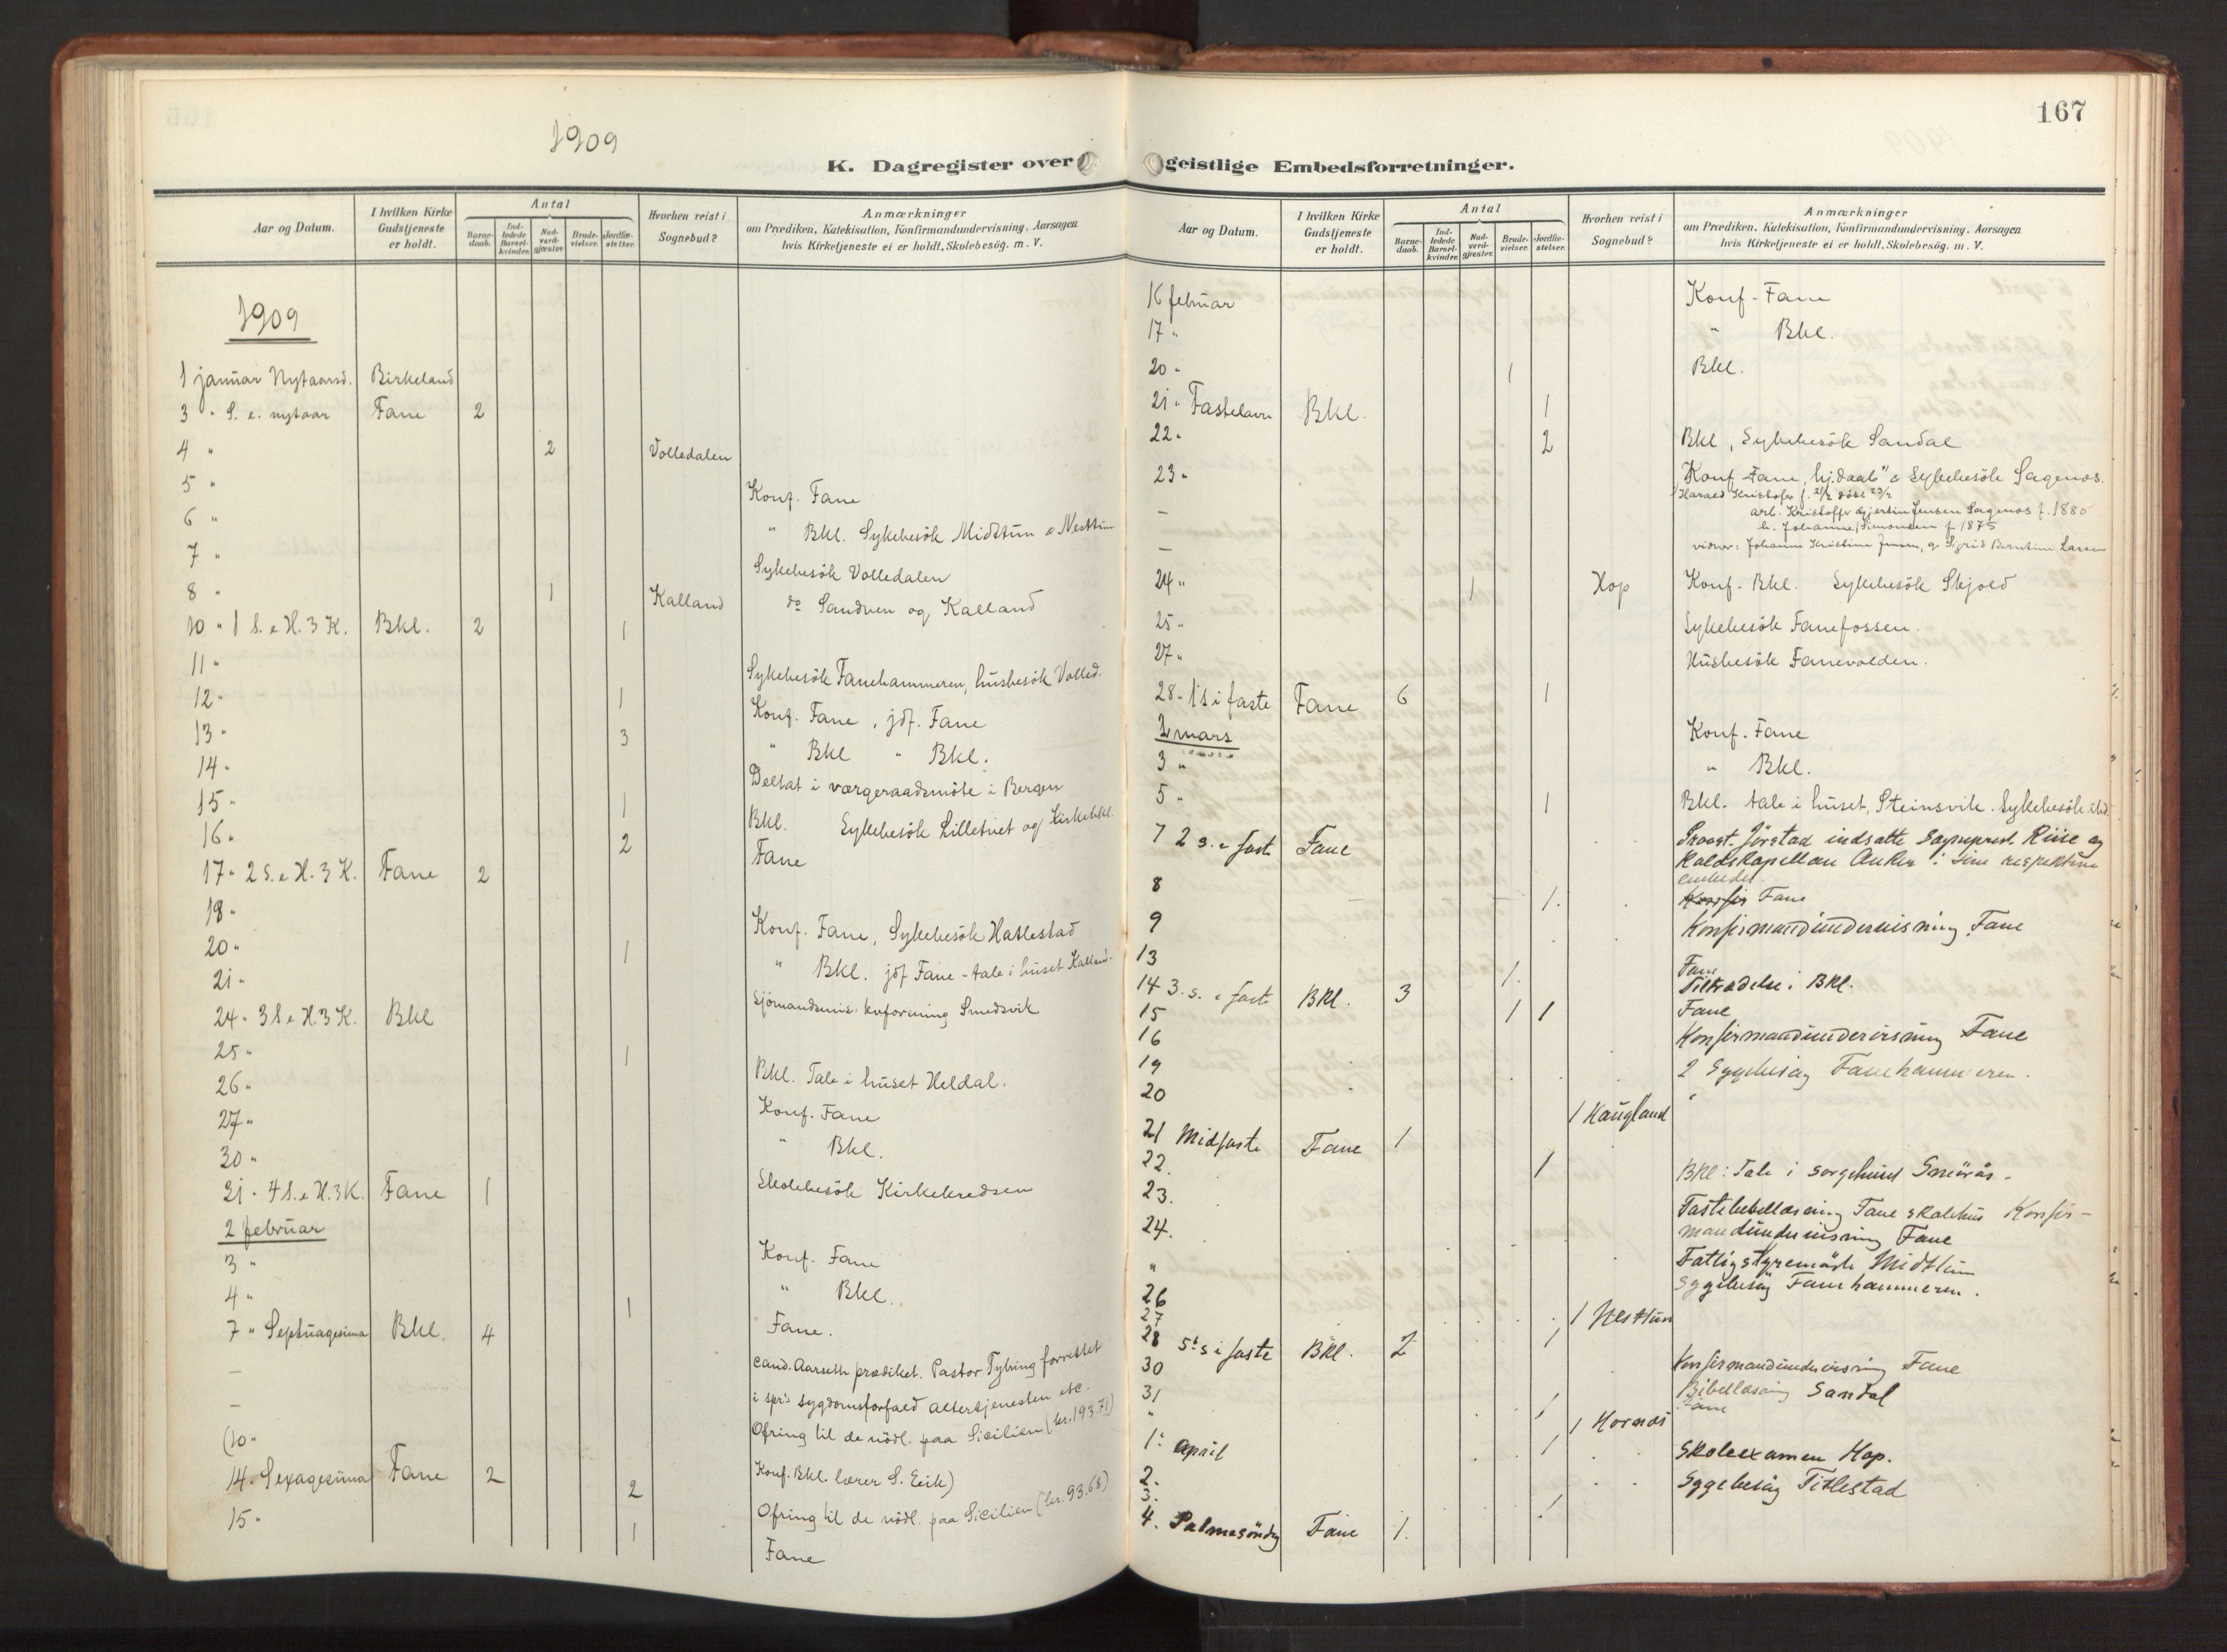 167
1909
K. Dagregister over geistlige Embedsforretninger.
Aar og Datum. I hvilken Kirke Gudstjeneste er holdt. Antal Barne-daab. Ind-ledede Barsel-kvinder. Nad-verd-gjæster. Brude-vielser. Jordfæ-stelser. Hvorhen reist i Sognebud? Anmærkninger om Prædiken, Katekisation, Konfirmandundervisning, Aarsagen hvis Kirketjeneste ei er holdt, Skolebesög. m. V.
1909
1 januar Nytaarsd. Birkeland
3 " S. e. nytaar Fane 2
4 " 2 Volledalen
5 " Konf. Fane
6 " " Bkl. Sykebesök Midttun & Nesttun
7 " Sykebesök Volledalen
8 " 1 Kalland do Sandven og Kalland
10 " 1 S. e H. 3 K. Bkl. 2 1
11 " Sykebesök Fanehammeren, husbesök Volled.
12 " 1 Konf. Fane, jdf. Fane
13 " 3 " Bkl " Bkl.
14 " Deltat i værgeraadsmöte i Bergen
15 " 1 Bkl. Sykebesök Lilletvet og Kirkebkl.
16 " 2 Fane
17 " 2 S. e H. 3 K. Fane 2
19 " Konf. Fane, Sykebesök Hatlestad
20 " 1 " Bkl. jdf Fane - tale i huset Kalland.
21 " Sjömandsmis: kvforening Smedsvik
24 " 3 S. e H. 3 K. Bkl
25 " 1 Bkl. Tale i huset Heldal.
26 " Konf. Fane
27 " " Bkl.
30 " Skolebesök Kirkekredsen
31 " 4 S. e H. 3 K. Fane 1
2 februar Konf. Fane
3 " " Bkl.
4 " 1 Fane.
7 " Septuagesima Bkl. 4 cand. Aarseth prædiket. Pastor Tybring forrettet
— i spr's sygdomsforfald altertjenesten etc.
— Ofring til de nödl. paa Sicilien (kr. 193.71)
(10 " Konf. Bkl. lærer S. Eeik)
14 " Sexagesima Fane 2 2 Ofring til de nödl. paa Sicilien (kr. 93.68)
15 " 1 Fane
Aar og Datum. I hvilken Kirke Gudstjeneste er holdt. Antal Barne-daab. Ind-ledede Barsel-kvinder. Nad-verd-gjæster. Brude-vielser. Jordfæ-stelser. Hvorhen reist i Sognebud? Anmærkninger om Prædiken, Katekisation, Konfirmandundervisning, Aarsagen hvis Kirketjeneste ei er holdt, Skolebesög. m. V.
16 februar Konf - Fane
17 " " Bkl.
20 " 1 Bkl.
21 " Fastelavn Bkl. 1
22 " 2 Bkl, Sykebesök Sandal
23 " Konf Fane, hj.daab & Sykebesök Sagenos.
Harald Kristofer f. 21/2 döbt 23/2
— arb. Kristoffer Gjertin Jensen Sagenos f. 1880
h. Johanne Simonsen f 1875
— vidner: Johanne Kristine Jensen, g. Sigrid Berntine Larsen
24 " 1 Hop Konf - Bkl. Sykebesök Skjold
25 " Sykebesök Fanefossen.
27 " Husbesök Fanevolden.
28 " 1 s i faste Fane 6 1
2 mars Konf. Fane
3 " " Bkl.
5 " 1 Bkl. tale i huset, Steinsvik. Sykebesök
7 2 s. i fast Fane Provst Jörstad indsatte sogneprest Riise og
Kaldskapellan Anker i sine respektive
embeder.
8 1. Fane
9 Konfirmandundervisning Fane
13 1. Fane
14 3. s. i fast BKl. 3 Tiltrædelse i BKl.
15 1 1 Fane
16 Konfirmandundervisning Fane
19 2 Sygebesög Fanehammeren.
20 1 Haugland "
21 Midfaste Fane 1
22. 1 BKl: Tale i sorgehuset Smörås -
23. Fastebibellæsning Fane skolehus Konfir-
mandundervisning Fane
24. Fattigstyremöte Midttun
" Sygebesög Fanehammeren.
26
27 1 Nesttun
28 5te s i faste BKl. 2 1
30 Konfirmandundervisning Fane
31 Bibellæsning Sandal
" 1 1 Hornes Fane
1. April 1 Skoleexamen Hop.
2. Sygebesög Titlestad
3. 1
4. Palmesöndag Fane 1.